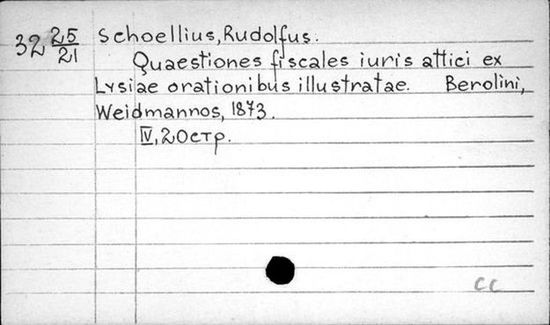 32 25/21 Schoellius, Rudolfus.
Quaestiones fiscales iuris attici ex
Lysiae orationibus illustratae. Berolini,
Weidmannos, 1873.
IV, 20стр.
СС